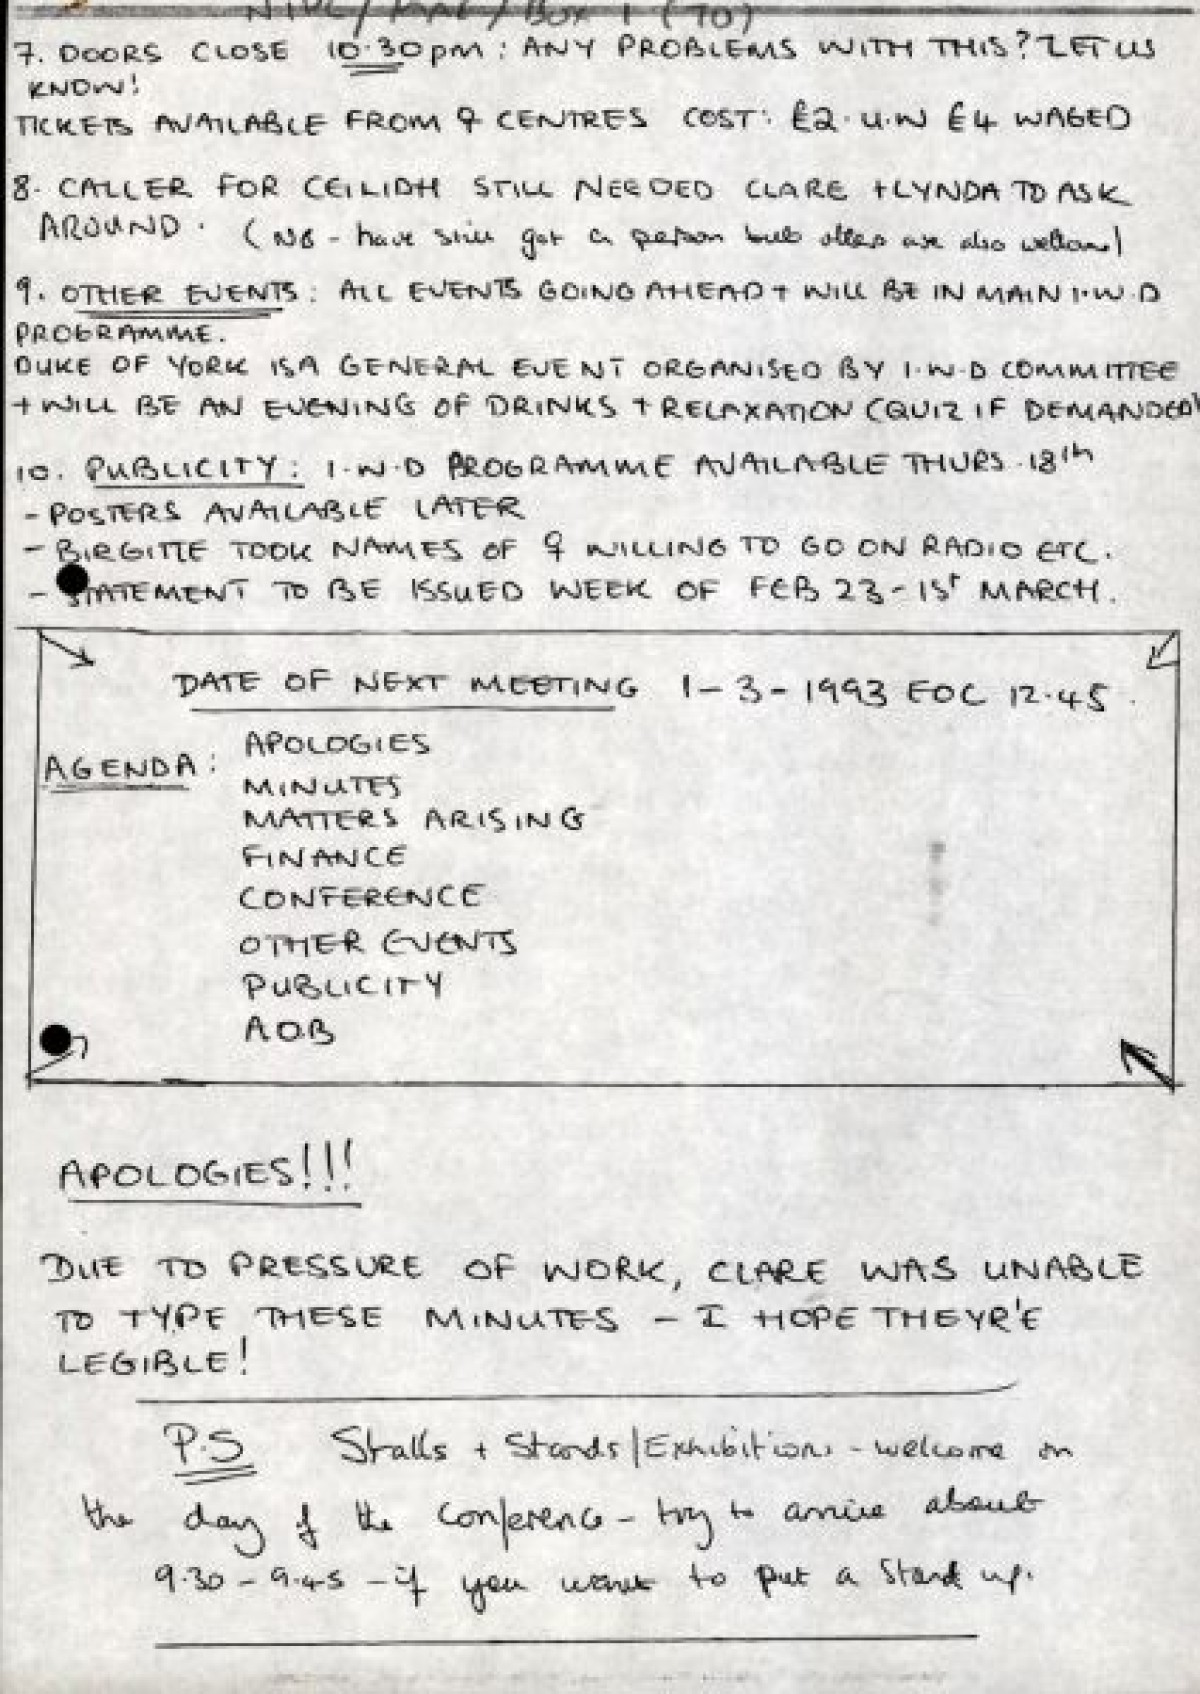 /Box 1 (70)
7. DOORS CLOSE 10.30pm: ANY PROBLEMS WITH THIS? LET US
KNOW!
TICKETS AVAILABLE FROM ♀ CENTRES COST: £2. U.W £4 WAGED
8. CALLER FOR CEILIDH STILL NEEDED CLARE + LYNDA TO ASK
AROUND. (NB - have still got a person but others are also welcome)
9. OTHER EVENTS: ALL EVENTS GOING AHEAD + WILL BE IN MAIN I.W.D
PROGRAMME.
DUKE OF YORK IS A GENERAL EVENT ORGANISED BY I.W.D COMMITTEE
+ WILL BE AN EVENING OF DRINKS + RELAXATION (QUIZ IF DEMANDED)
10. PUBLICITY: I.W.D PROGRAMME AVAILABLE THURS. 18th
- POSTERS AVAILABLE LATER
- BIRGITTE TOOK NAMES OF ♀ WILLING TO GO ON RADIO ETC.
- STATEMENT TO BE ISSUED WEEK OF FEB 23 - 1st MARCH.
DATE OF NEXT MEETING 1-3-1993 EOC 12.45.
AGENDA: APOLOGIES
MINUTES
MATTERS ARISING
FINANCE
CONFERENCE
OTHER EVENTS
PUBLICITY
A.O.B
APOLOGIES!!!
DUE TO PRESSURE OF WORK, CLARE WAS UNABLE
TO TYPE THESE MINUTES - I HOPE THEYR'E
LEGIBLE!
P.S Stalls + Stands/Exhibitions - welcome on
the day of the Conference - try to arrive about
9.30 - 9.45 - if you want to put a Stand up.